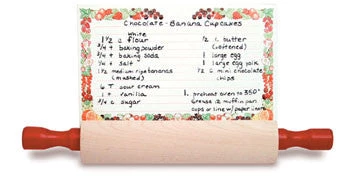 Chocolate - Banana Cupcakes
White
1 1/2 c flour
3/4 t baking powder
3/4 t baking soda
1/4 t salt
1 1/2 medium ripe bananas
(mashed)
6 T sour cream
1 t vanilla
3/4 c sugar
1/2 c butter
(softened)
1 large egg
1 large egg yolk
1/2 c mini chocolate
chips
1. preheat oven to 350°
Grease 12 muffin pan
cups or line w/ paper inserts